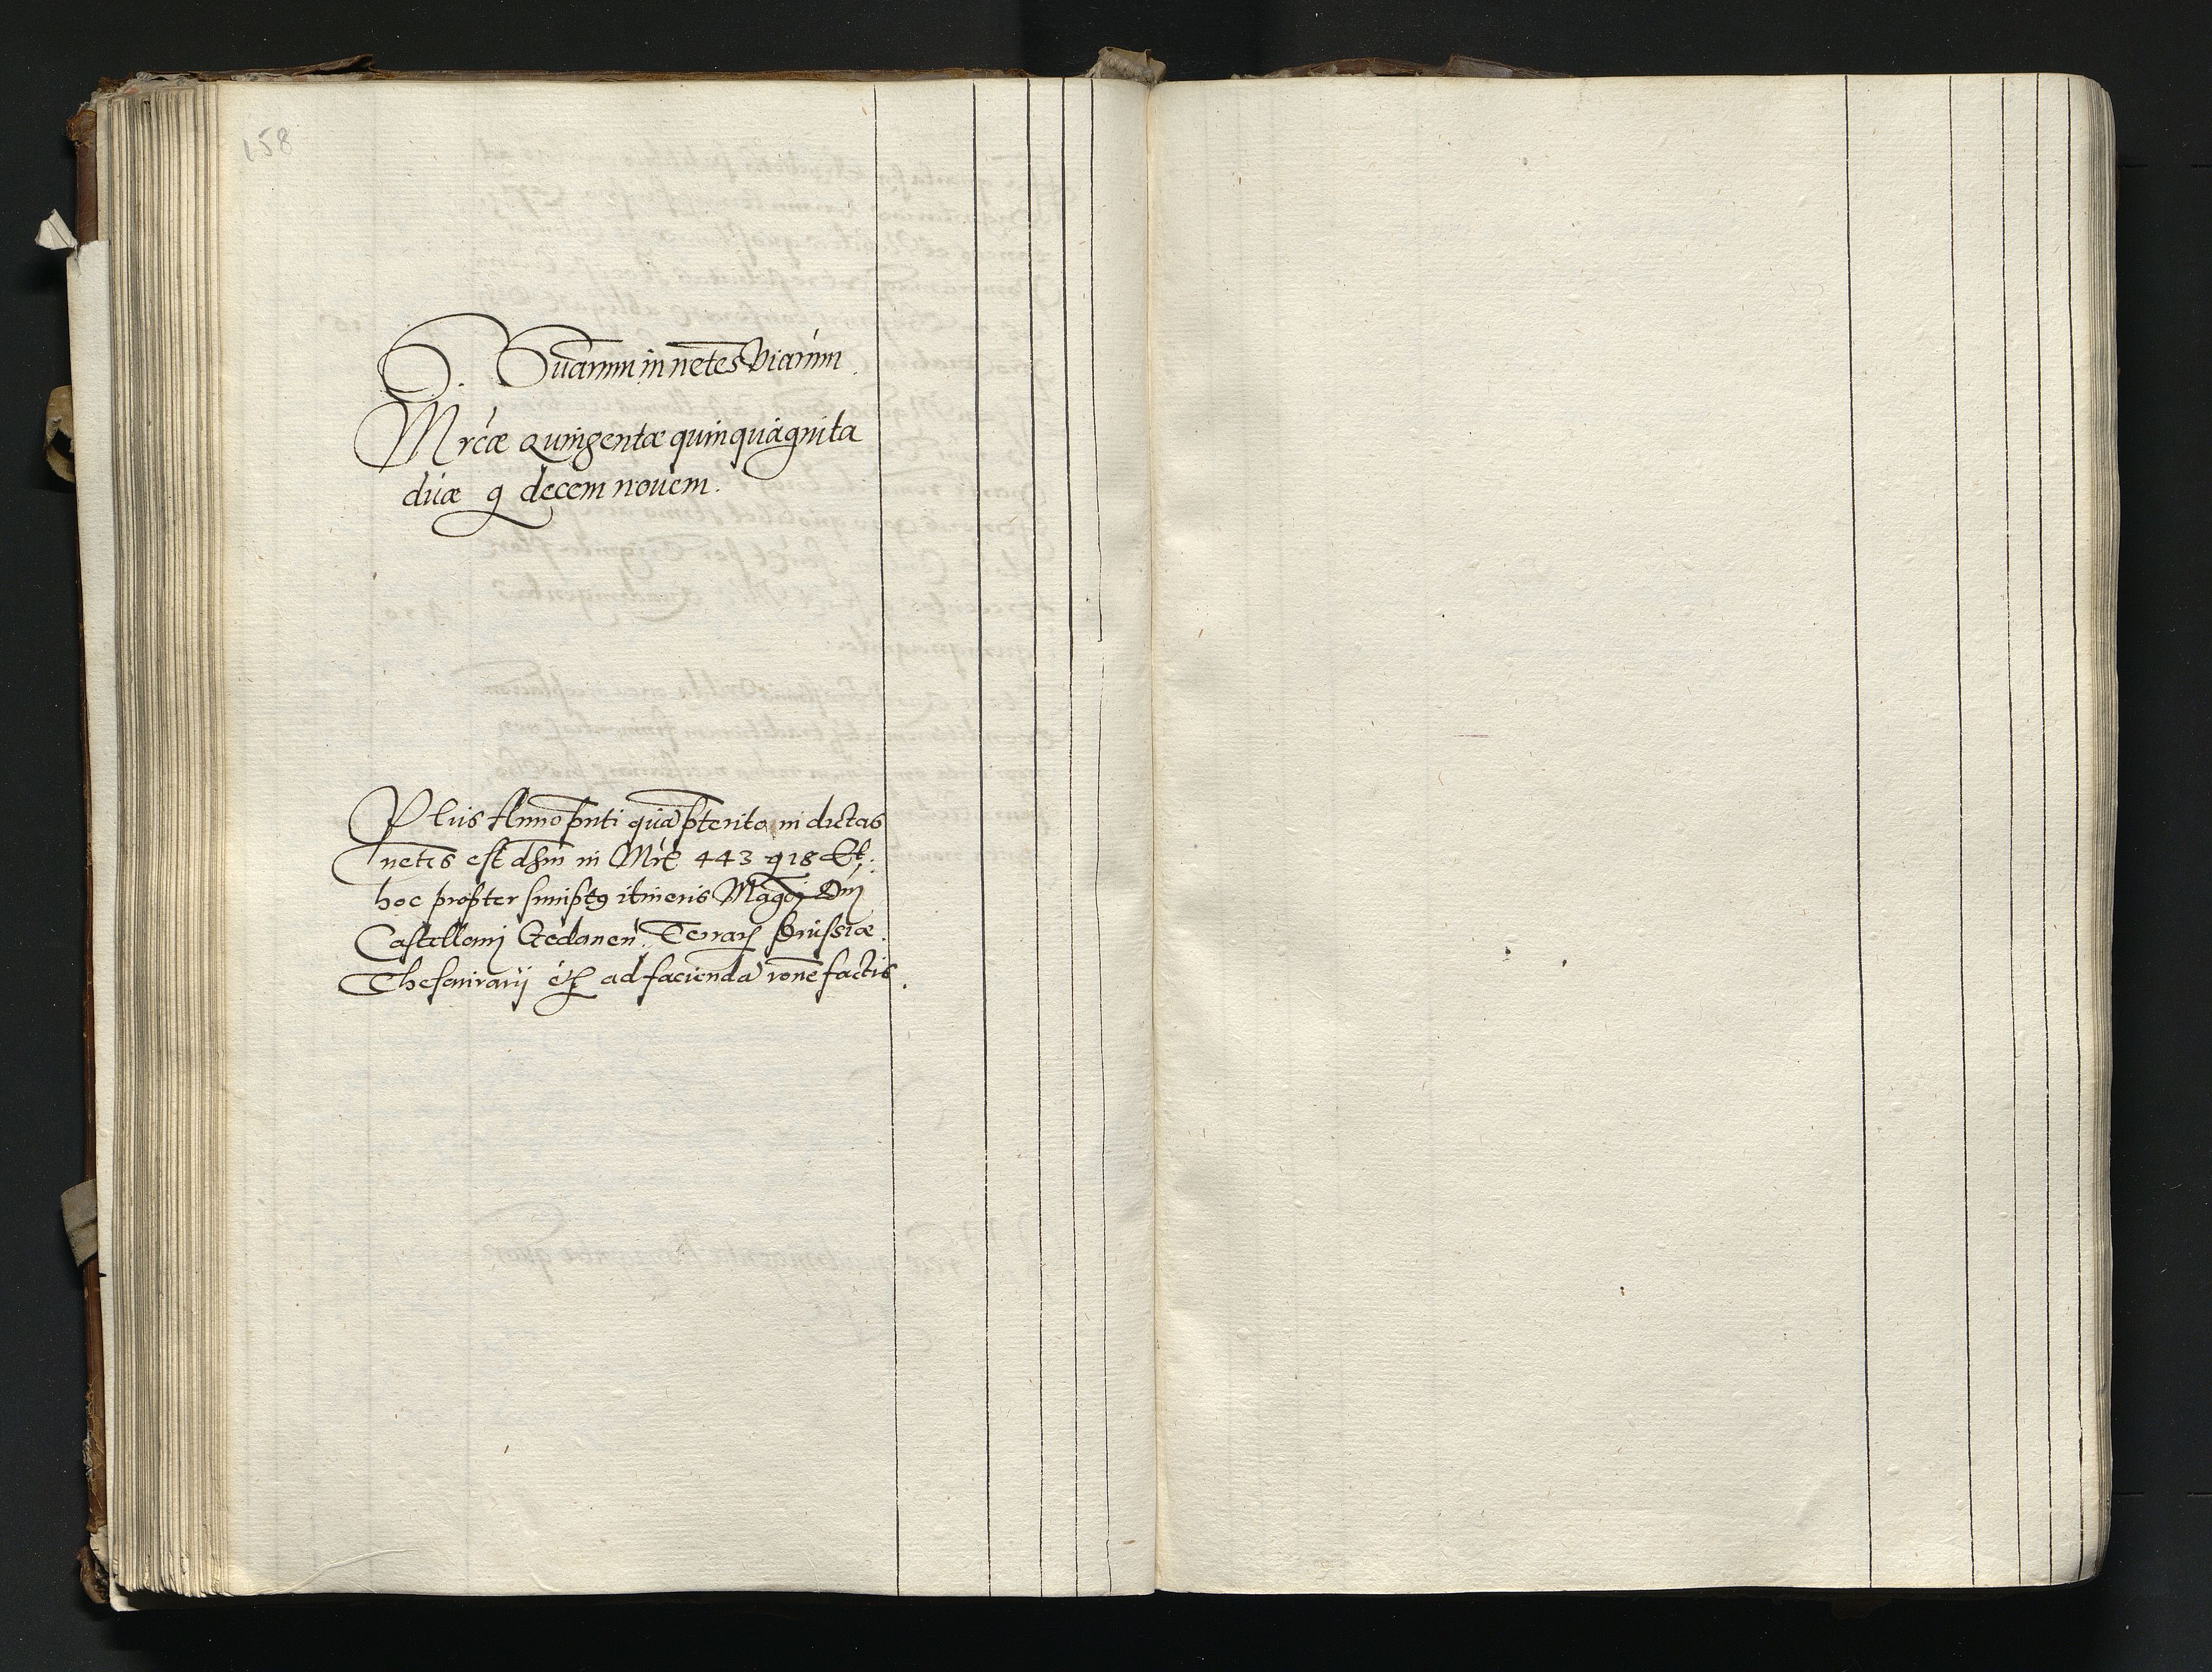 158
S. Suarum in netes viarum.
Mrcæ Quingentæ quinquaginta
duæ g decem novem.
Plus Anno pnti quā pterito in dictas
netes est dsm in Mrc 443 g 18 Et
hoc propter sumptg itineris Magci Dnj
Castellanj Gedanen. Terrarȝ Prussiæ.
Thesaurarij ad faciendā rone factis.